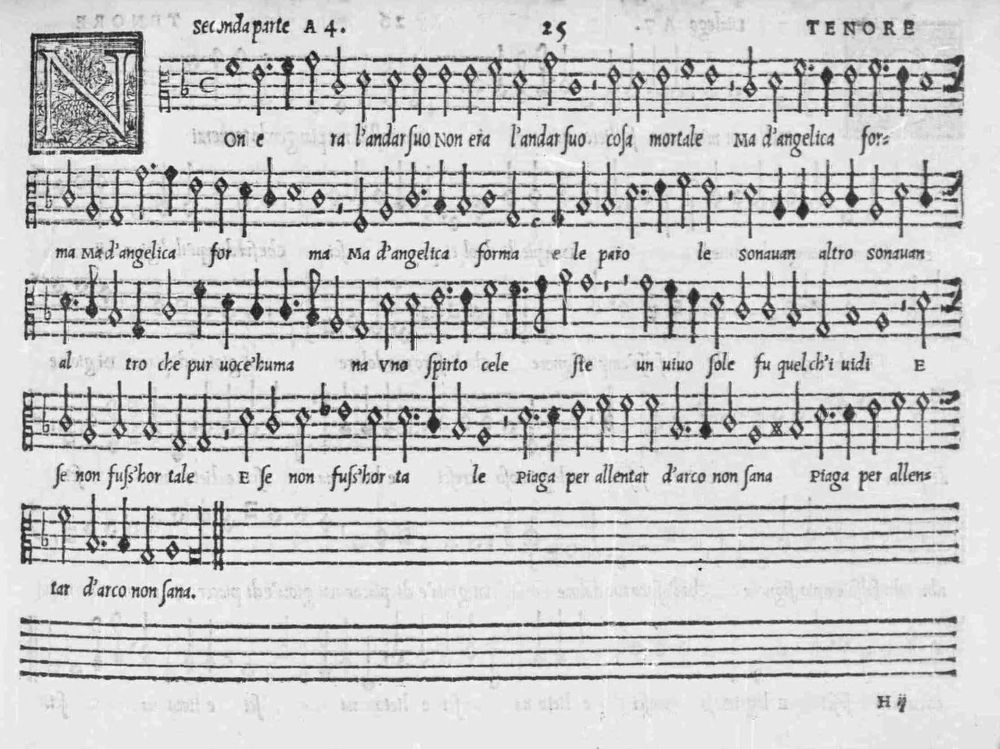 Seconda parte A 4. 25 TENORE
NOn e ra l'andar suo Non era l'andar suo cosa mortale Ma d'angelica for-
ma Ma d'angelica for ma Ma d'angelica forma e le paro le sonauan altro sonauan
al tro che pur uoce'huma na Vno spirto cele ste un uiuo sole fu quel ch'i uidi E
se non fuss'hor tale E se non fuss'hor ta le Piaga per allentar d'arco non sana Piaga per allen-
tar d'arco non sana.
H ij